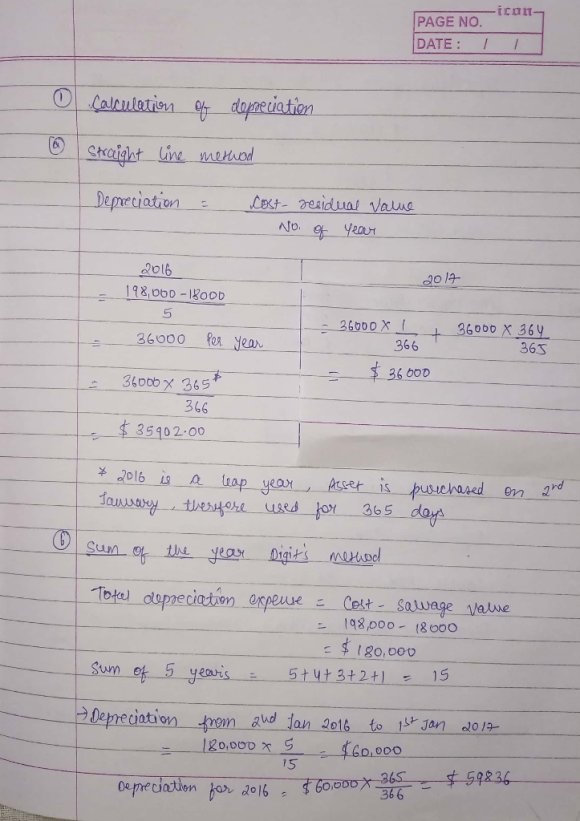 icon
PAGE NO.
DATE : / /
① Calculation of depreciation
ⓐ Straight line method
Depreciation = Cost - residual value
No. of year
2016
= 198,000 - 18000
5
= 36000 Per year
= 36000 X 365*
366
= $ 35902.00
2017
= 36000 X 1 + 36000 X 364
366 365
= $ 36000
* 2016 is a leap year, Asset is purchased on 2nd
January, therefore used for 365 days
ⓑ Sum of the year Digit's method
Total depreciation expense = Cost - Salvage value
= 198,000 - 18000
= $ 180,000
Sum of 5 years = 5+4+3+2+1 = 15
→ Depreciation from 2nd Jan 2016 to 1st Jan 2017
= 180,000 x 5 = $60,000
15
Depreciation for 2016 = $60,000 X 365 = $ 59836
366